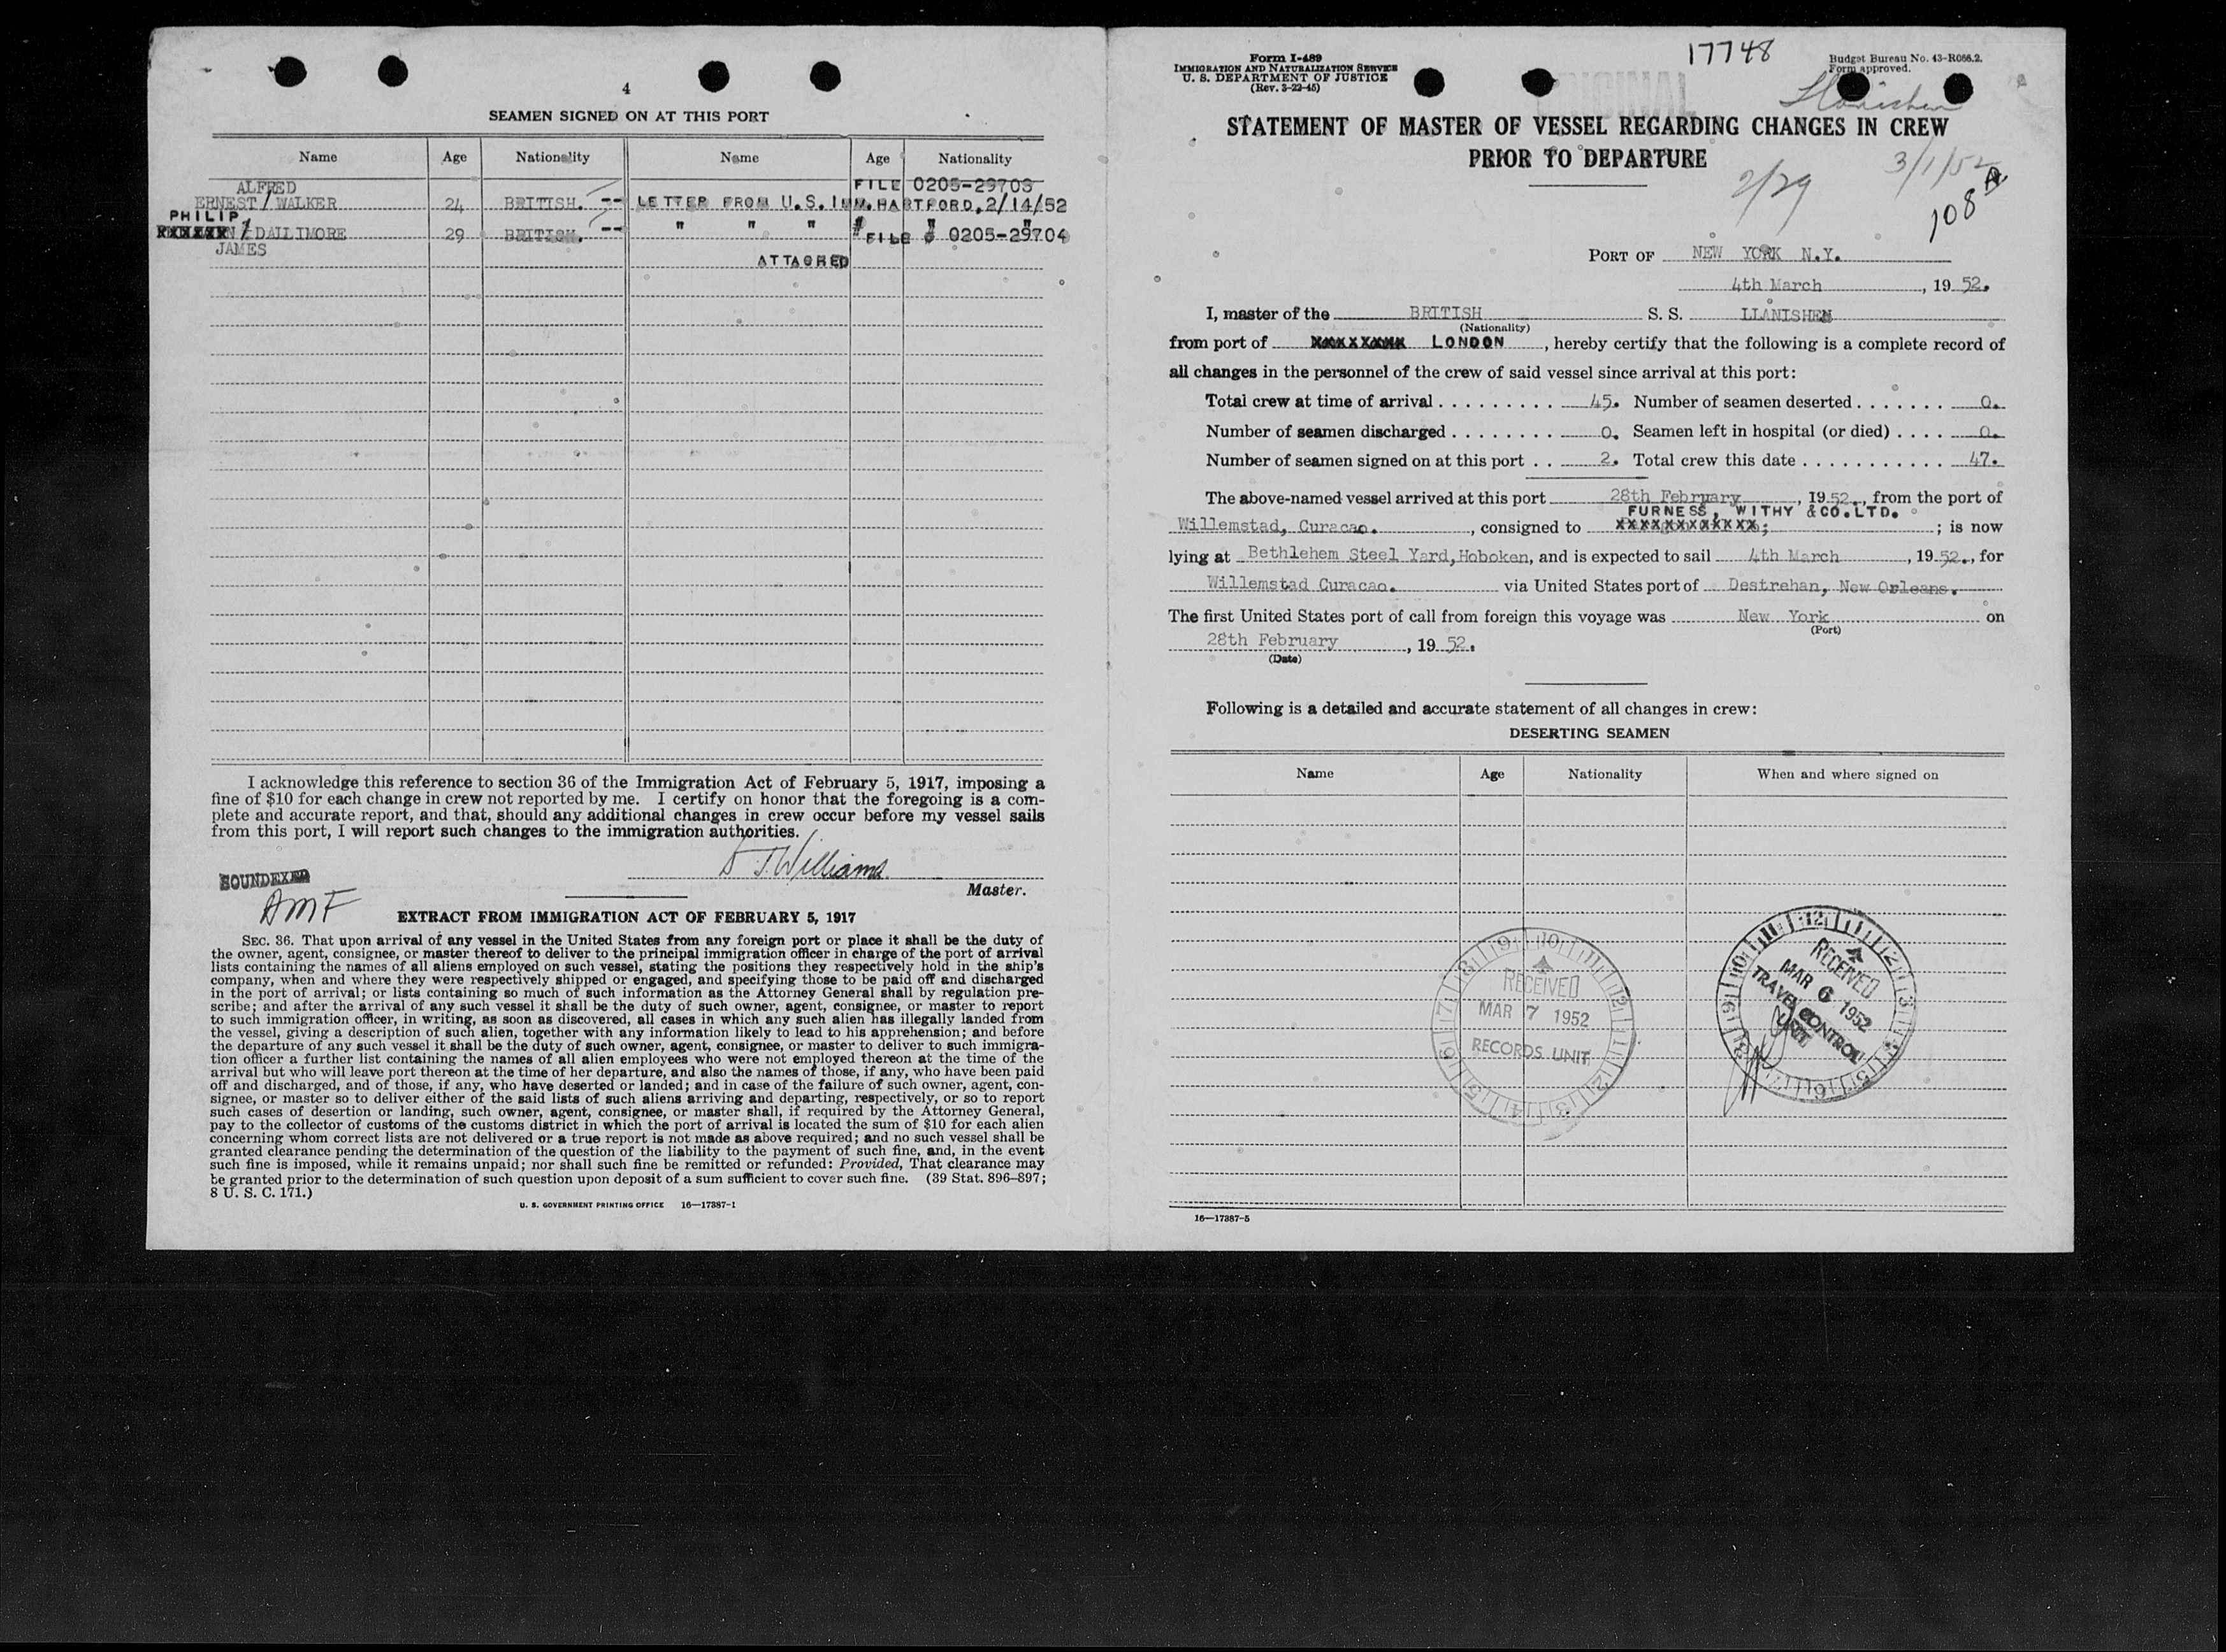 4
SEAMEN SIGNED ON AT THIS PORT
Name Age Nationality Name Age Nationality
ALFRED FILE 0205-29703
ERNEST / WALKER 24 BRITISH. -- LETTER FROM U.S.IMM.HARTFORD,2/14/52
PHILIP
DAILIMORE 29 BRITISH. -- " " " " "
FILE # 0205-29704
JAMES
ATTACHED
I acknowledge this reference to section 36 of the Immigration Act of February 5, 1917, imposing a
fine of $10 for each change in crew not reported by me. I certify on honor that the foregoing is a com-
plete and accurate report, and that, should any additional changes in crew occur before my vessel sails
from this port, I will report such changes to the immigration authorities.
D J. Williams.
Master.
SOUNDEXED
AMF
EXTRACT FROM IMMIGRATION ACT OF FEBRUARY 5, 1917
SEC. 36. That upon arrival of any vessel in the United States from any foreign port or place it shall be the duty of
the owner, agent, consignee, or master thereof to deliver to the principal immigration officer in charge of the port of arrival
lists containing the names of all aliens employed on such vessel, stating the positions they respectively hold in the ship's
company, when and where they were respectively shipped or engaged, and specifying those to be paid off and discharged
in the port of arrival; or lists containing so much of such information as the Attorney General shall by regulation pre-
scribe; and after the arrival of any such vessel it shall be the duty of such owner, agent, consignee, or master to report
to such immigration officer, in writing, as soon as discovered, all cases in which any such alien has illegally landed from
the vessel, giving a description of such alien, together with any information likely to lead to his apprehension; and before
the departure of any such vessel it shall be the duty of such owner, agent, consignee, or master to deliver to such immigra-
tion officer a further list containing the names of all alien employees who were not employed thereon at the time of the
arrival but who will leave port thereon at the time of her departure, and also the names of those, if any, who have been paid
off and discharged, and of those, if any, who have deserted or landed; and in case of the failure of such owner, agent, con-
signee, or master so to deliver either of the said lists of such aliens arriving and departing, respectively, or so to report
such cases of desertion or landing, such owner, agent, consignee, or master shall, if required by the Attorney General,
pay to the collector of customs of the customs district in which the port of arrival is located the sum of $10 for each alien
concerning whom correct lists are not delivered or a true report is not made as above required; and no such vessel shall be
granted clearance pending the determination of the question of the liability to the payment of such fine, and, in the event
such fine is imposed, while it remains unpaid; nor shall such fine be remitted or refunded: Provided, That clearance may
be granted prior to the determination of such question upon deposit of a sum sufficient to cover such fine. (39 Stat. 896–897;
8 U. S. C. 171.)
U. S. GOVERNMENT PRINTING OFFICE 16—17387-1
Form I-489
IMMIGRATION AND NATURALIZATION SERVICE
U. S. DEPARTMENT OF JUSTICE
(Rev. 3-22-45)
17748
Budget Bureau No. 43-R066.2.
Form approved.
ORIGINAL
Llanishen
STATEMENT OF MASTER OF VESSEL REGARDING CHANGES IN CREW
PRIOR TO DEPARTURE
2/29
3/1/52
108
PORT OF NEW YORK N.Y.
4th March, 19 52.
I, master of the BRITISH S. S. LLANISHEN
(Nationality)
from port of XXXXXXXX LONDON, hereby certify that the following is a complete record of
all changes in the personnel of the crew of said vessel since arrival at this port:
Total crew at time of arrival . . . . . . . . . 45. Number of seamen deserted . . . . . . . 0.
Number of seamen discharged . . . . . . . . 0. Seamen left in hospital (or died) . . . . 0.
Number of seamen signed on at this port . . 2. Total crew this date . . . . . . . . . . . 47.
The above-named vessel arrived at this port 28th February, 19 52., from the port of
FURNESS, WITHY & CO.LTD.
Willemstad, Curacao., consigned to XXXXXXXXXXXX; ; is now
lying at Bethlehem Steel Yard,Hoboken, and is expected to sail 4th March, 19 52., for
Willemstad Curacao. via United States port of Destrehan, New Orleans.
The first United States port of call from foreign this voyage was New York on
(Port)
28th February, 19 52.
(Date)
Following is a detailed and accurate statement of all changes in crew:
DESERTING SEAMEN
Name Age Nationality When and where signed on
RECEIVED
MAR 7 1952
RECORDS UNIT
RECEIVED
MAR 6 1952
TRAVEL CONTROL
UNIT
16—17387-5